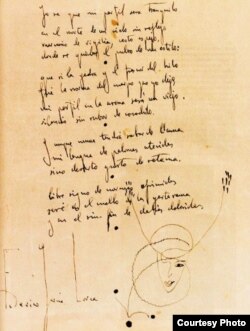 Yo sé que mi perfil será tranquilo
en el norte de un cielo sin reflejo,
mercurio de vigilia, casto espejo
donde se quiebre el pulso de mi estilo.
que si la yedra y el frescor del hilo
fué la norma del cuerpo que yo dejo
mi perfil en la arena será un viejo
silencio sin rubor de cocodrilo.
Y aunque nunca tendrá sabor de llama
mi lengua de palomas ateridas
sino desierto gusto de retama.
libre signo de normas oprimidas
seré en el cuello de la yerta rama
y en el sin fin de dalias doloridas.
Federico García Lorca
Courtesy Photo